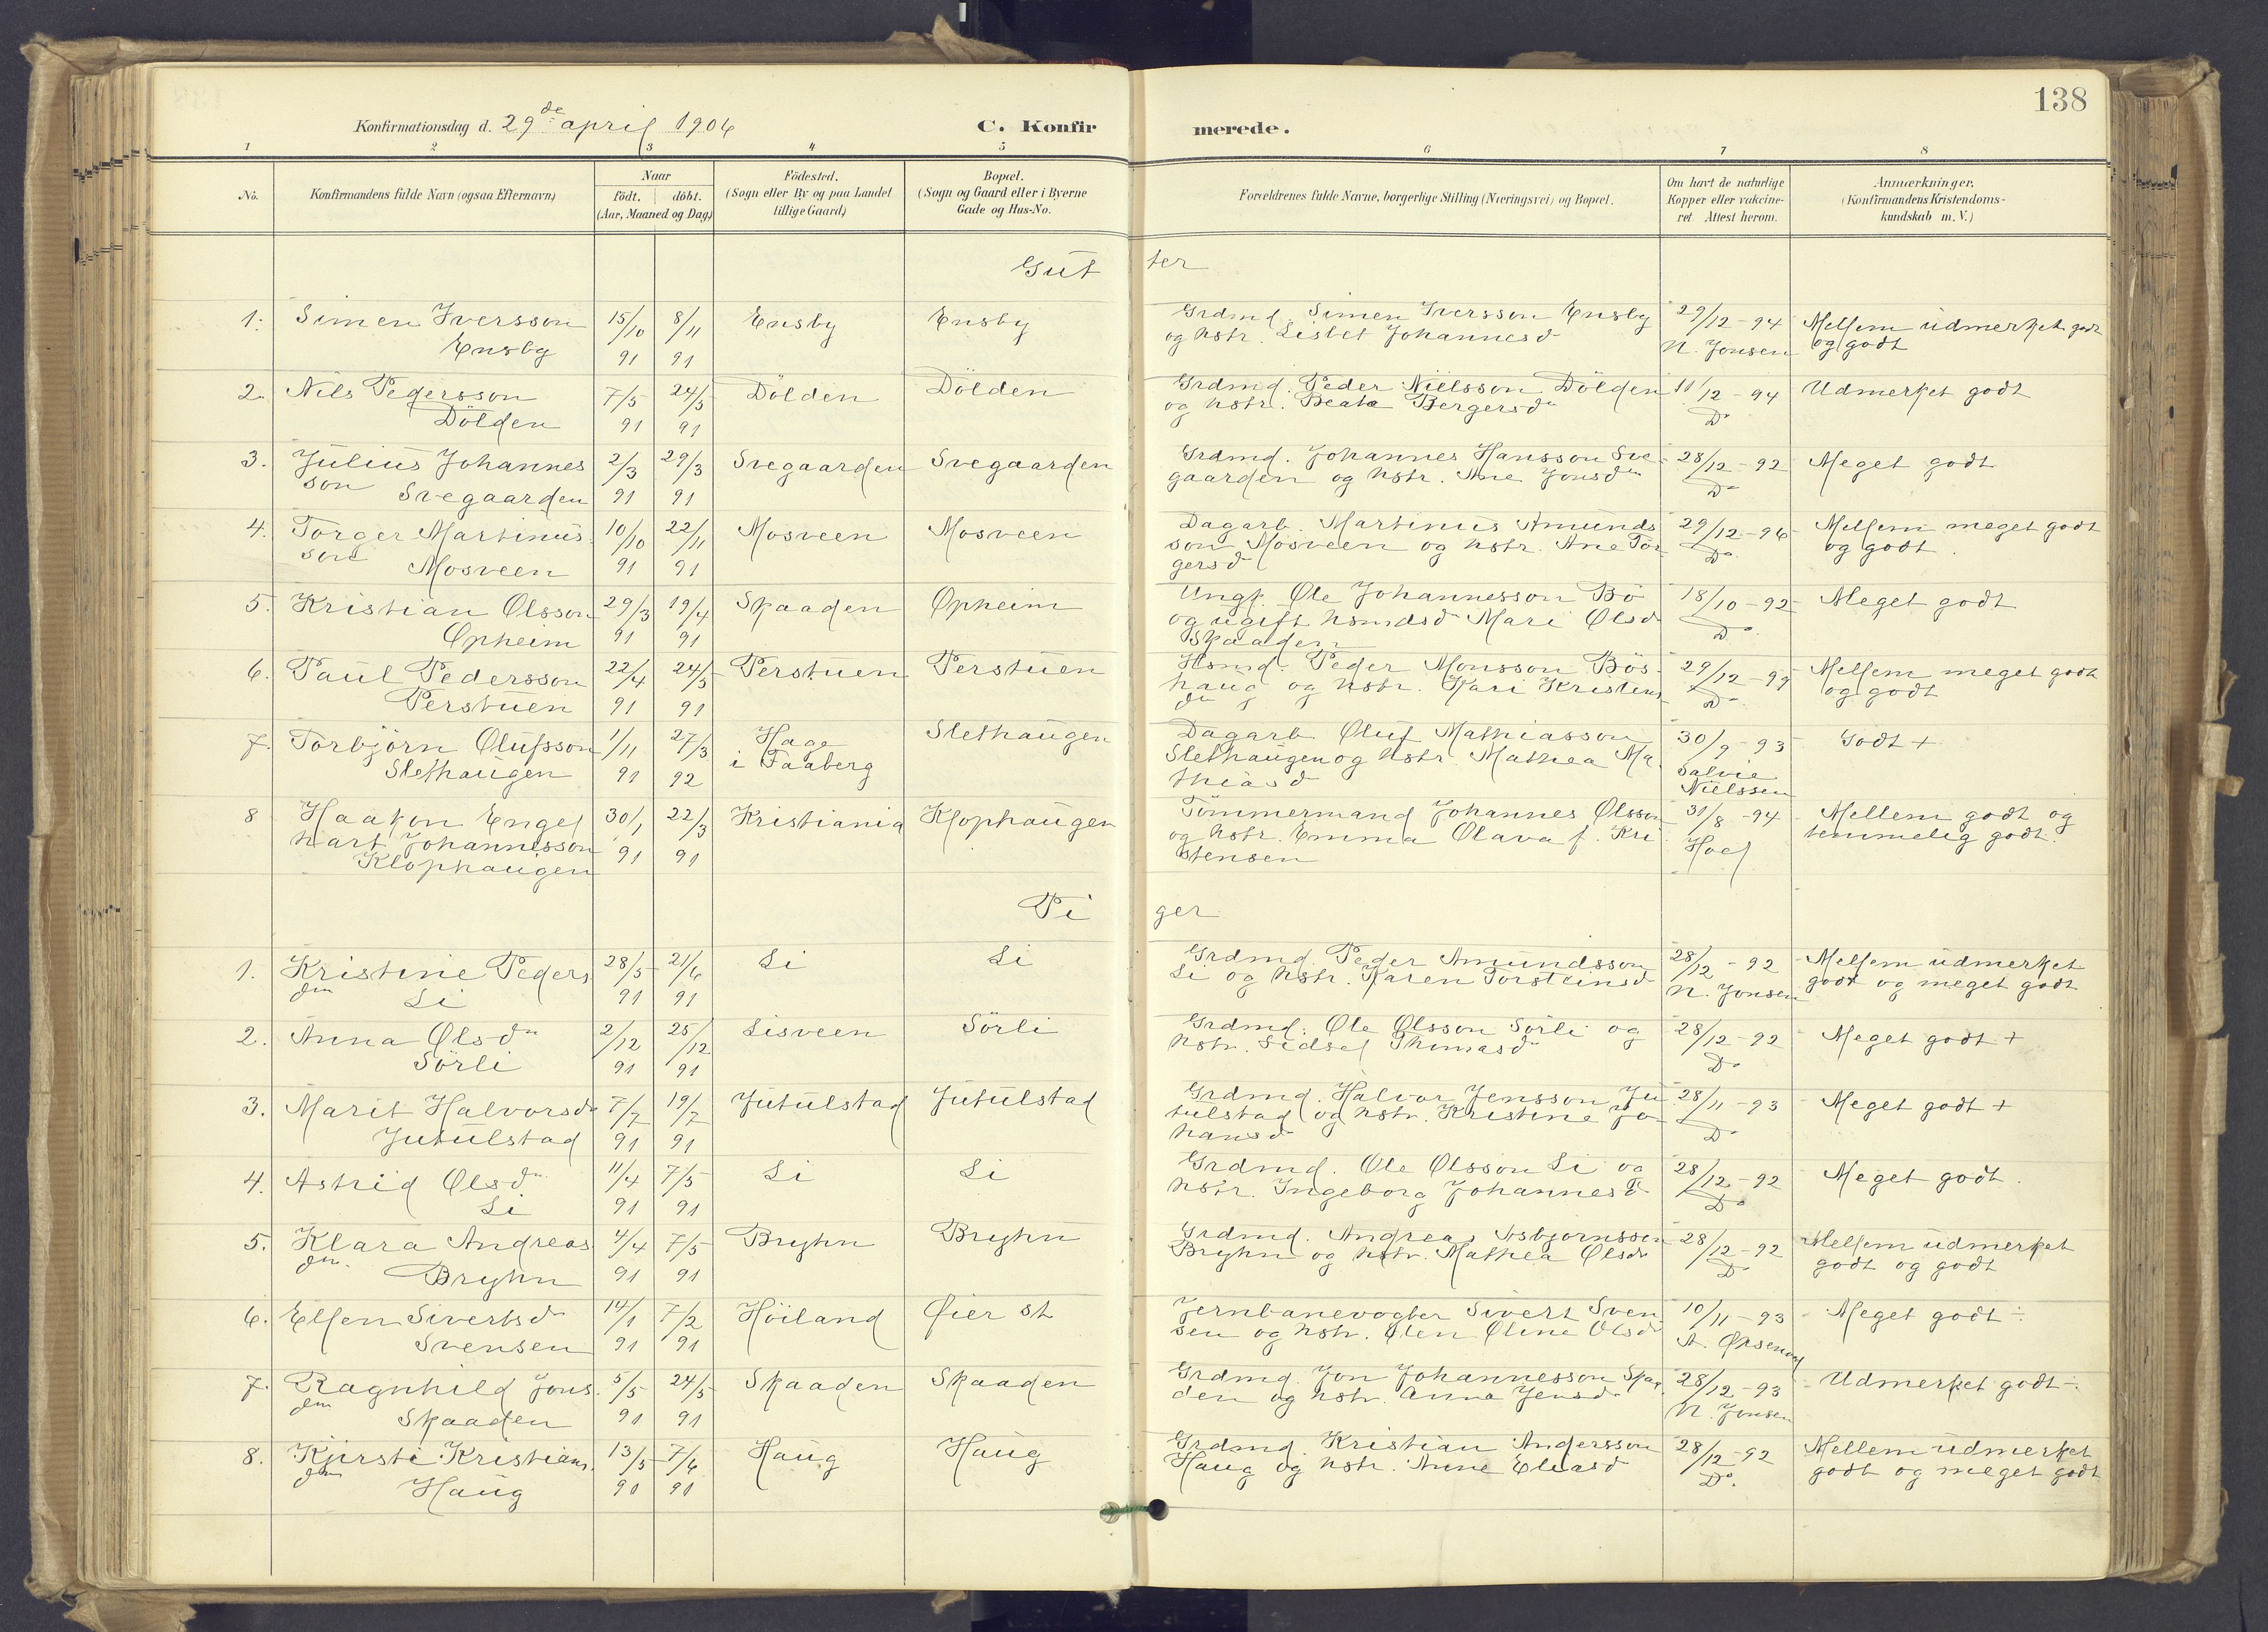 138
Konfirmationsdag d. 29de april 1906
C. Konfirmerede.
1 2 3 4 5 6 7 8
No.
Konfirmandens fulde Navn (ogsaa Efternavn)
Naar
födt. döbt.
(Aar, Maaned og Dag)
Födested.
(Sogn eller By og paa Landet
tillige Gaard)
Bopæl.
(Sogn og Gaard eller i Byerne
Gade og Hus-No.
Forældrenes fulde Navne, borgerlige Stilling (Næringsvei) og Bopæl.
Om havt de naturlige
Kopper eller vakcine-
ret. Attest herom.
Anmærkninger.
(Konfirmandens Kristendoms-
kundskab m. V.)
Gutter
1. Simen Iversson 15/10 8/11 Ensby Ensby Grdmd. Simen Iversson Ensby 29/12 - 94 Mellem udmerket godt
Ensby 91 91 og hstr. Lisbet Johannesd N. Jonsen og godt
2. Nils Pedersson 7/5 24/5 Dölden Dölden Grdmd. Peder Nielsson Dölden 11/12 - 94 Udmerket godt
Dölden 91 91 og hstr. Beata Bergersdn Do
3. Julius Johannes 2/3 29/3 Svegaarden Svegaarden Grdmd. Johannes Hansson Sve- 28/12 - 92 Meget godt
son Svegaarden 91 91 gaarden og hstr. Ane Jonsdn Do
4. Torger Martinus 10/10 22/11 Mosveen Mosveen Dagarb. Martinus Amunds 29/12 - 96 Mellem meget godt
son Mosveen 91 91 son Mosveen og hstr. Ane Tor Do og godt.
gersd
5. Kristian Olsson 29/3 19/4 Skaaden Opheim Ungk. Ole Johannesson Bö 18/10 - 92 Meget godt
Opheim 91 91 og ugift hsmdsd Mari Olsd Do
Skaaden
6. Paul Pedersson 22/4 24/5 Perstuen Perstuen Hsmd. Peder Monsson Bös- 29/12 - 99 Mellem meget godt
Perstuen 91 91 haug og hstr. Kari Kristens Do og godt
dn
7. Torbjörn Olufsson 1/11 27/3 Hage Slethaugen Dagarb Oluf Mathiasson 30/9 - 93 Godt +
Slethaugen 91 92 i Faaberg Slethaugen og hstr. Mathea Ma Salvie
thiasd Nielssen
8 Haakon Engel 30/1 22/3 Kristiania Klophaugen Tömmermand Johannes Olsson 31/8 - 94 Mellem godt og
hart Johannesson 91 91 og hstr. Emma Olava f. Kri Hoel temmelig godt.
Klophaugen stensen
Piger
1. Kristine Peders 28/5 21/6 Li Li Grdmd. Peder Amundsson 28/12 - 92 Mellem udmerket
dn Li 91 91 Li og hstr. Karen Torsteinsd N. Jonsen godt og meget godt
2. Anna Olsdn 2/12 25/12 Lisveen Sörli Grdmd. Ole Olsson Sörli og 28/12 - 92 Meget godt +
Sörli 91 91 hstr. Sidsel Thomasdn Do
3. Marit Halvorsdn 7/7 19/7 Jutulstad Jutulstad Grdmd. Halvor Jensson Ju 28/11 - 93 Meget godt +
Jutulstad 91 91 tulstad og hstr. Kristine Jo- Do
hansd
4. Astrid Olsdn 11/4 7/5 Li Li Grdmd. Ole Olsson Li og 28/12 - 92 Meget godt.
Li 91 91 hstr. Ingeborg Johannesd Do
5. Klara Andreas 4/4 7/5 Bryhn Bryhn Grdmd. Andreas Asbjornssen 28/12 - 92 Mellem udmerket
dn. Bryhn 91 91 Bryhn og hstr. Mathea Olsdn Do godt og godt
6. Ellen Sivertsdn 14/1 7/2 Höiland Öier st Jernbanevogter Sivert Sven 10/11 - 93 Meget godt ÷
Svensen 91 91 sen og hstr. Oline Olsd A.
7. Ragnhild Jons 5/5 24/5 Skaaden Skaaden Grdmd. Jon Johannesson Skaa 28/12 - 93 Udmerket godt ÷
dn Skaaden 91 91 den og hstr. Anna Jensdn N. Jonsen
8. Kjirsti Kristians 13/5 7/6 Haug Haug Grdmd. Kristian Andersson 28/12 - 92 Mellem udmerket
dn Haug 91 91 Haug og hstr. Anne Eliasd Do. godt og meget godt